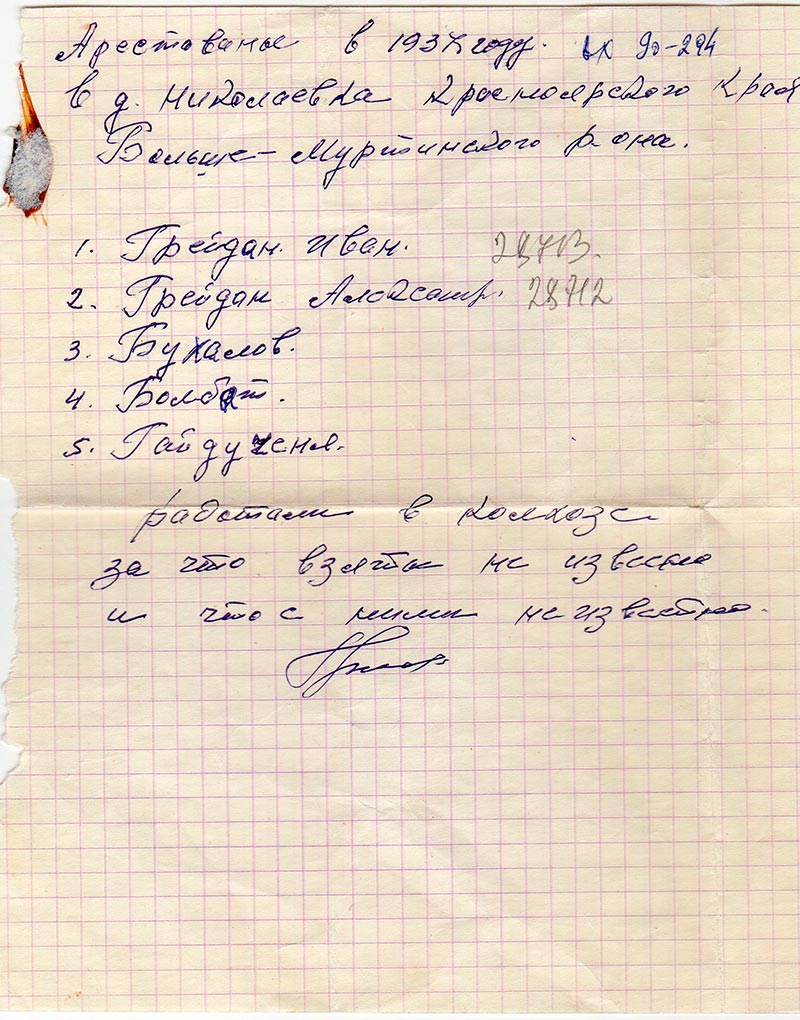 Арестованы в 1937 году. вх 90-294
в д. Николаевка Красноярского края
Больше-Муртинского р-она.
1. Грейдан Иван. 28713.
2. Грейдан Александр. 28712
3. Букалов.
4. Болбат.
5. Гайдученя.
работали в колхозе
за что взяты не известно
и что с ними не известно.